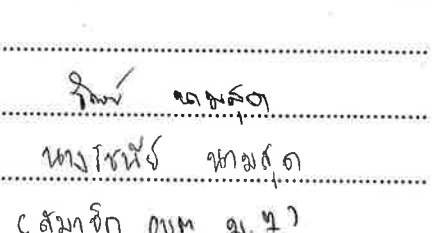 นามสุด
นางรัชนีย์ นามสุด
(สมาชิก อบต ม.7)